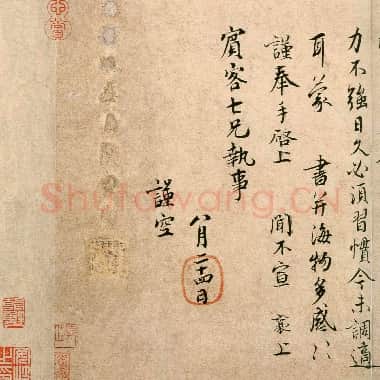 力不強日久必須習慣今未調適
耳蒙 書并海物多感〻
謹奉手啓上 聞不宣 襄上
賓客七兄執事
八月二十四日
謹空
Shufawang.CN